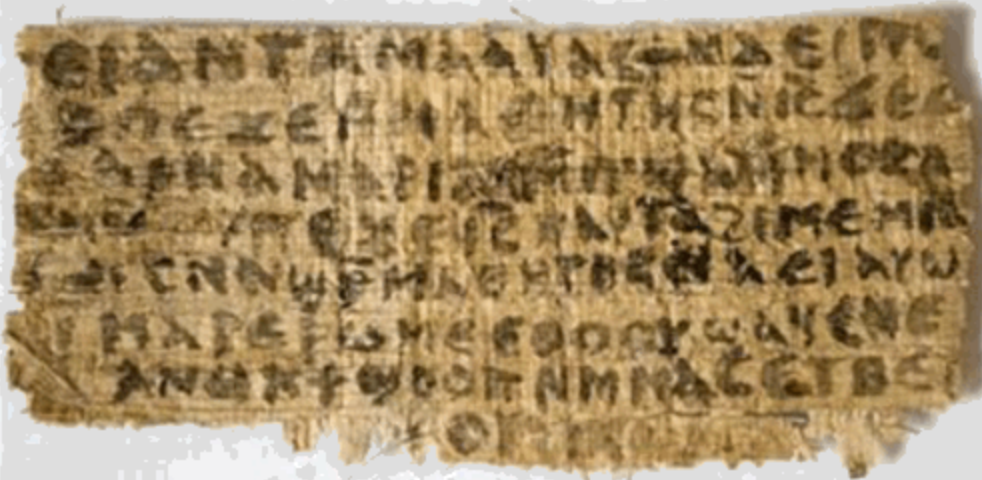 ⲉⲓ ⲁⲛ ⲧⲁⲙⲁⲁⲩ ⲁⲥϯ ⲛⲁⲉⲓ ⲡ
ⲡⲉϫⲉ ⲙⲙⲁⲑⲏⲧⲏⲥ ⲛⲓ̅ⲥ̅ ϫⲉ ⲥ
ⲁⲣⲛⲁ ⲙⲁⲣⲓⲁⲙ
ⲡⲉϫⲉ ⲓ̅ⲥ̅ ⲛⲁⲩ ⲧⲁϩⲓⲙⲉ ⲙⲛ
ⲥⲛⲁϣⲣⲙⲁⲑⲏⲧⲏⲥ ⲛⲁⲉⲓ ⲁⲩⲱ
ⲓ ⲙⲁⲣⲉⲣⲱⲙⲉ ⲉⲑⲟⲟⲩ ϣⲁϥⲉⲛⲉ
ⲁⲛⲟⲕ ϯϣⲟⲟⲡ ⲛⲙⲙⲁⲥ ⲉⲧⲃⲉ